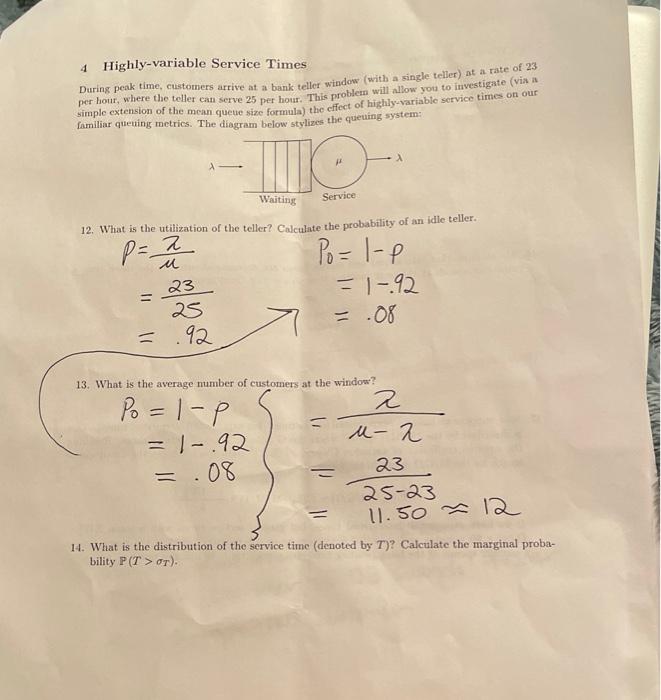 4 Highly-variable Service Times
During peak time, customers arrive at a bank teller window (with a single teller) at a rate of 23
per hour, where the teller can serve 25 per hour. This problem will allow you to investigate (via a
simple extension of the mean queue size formula) the effect of highly-variable service times on our
familiar queuing metrics. The diagram below stylizes the queuing system:
λ → μ → λ
Waiting Service
12. What is the utilization of the teller? Calculate the probability of an idle teller.
P = λ/μ
= 23/25
= .92
P₀ = 1-P
= 1-.92
= .08
13. What is the average number of customers at the window?
P₀ = 1-P
= 1-.92
= .08
= λ/(μ-λ)
= 23/(25-23)
= 11.50 ≈ 12
14. What is the distribution of the service time (denoted by T)? Calculate the marginal proba-
bility ℙ(T > σ_T).